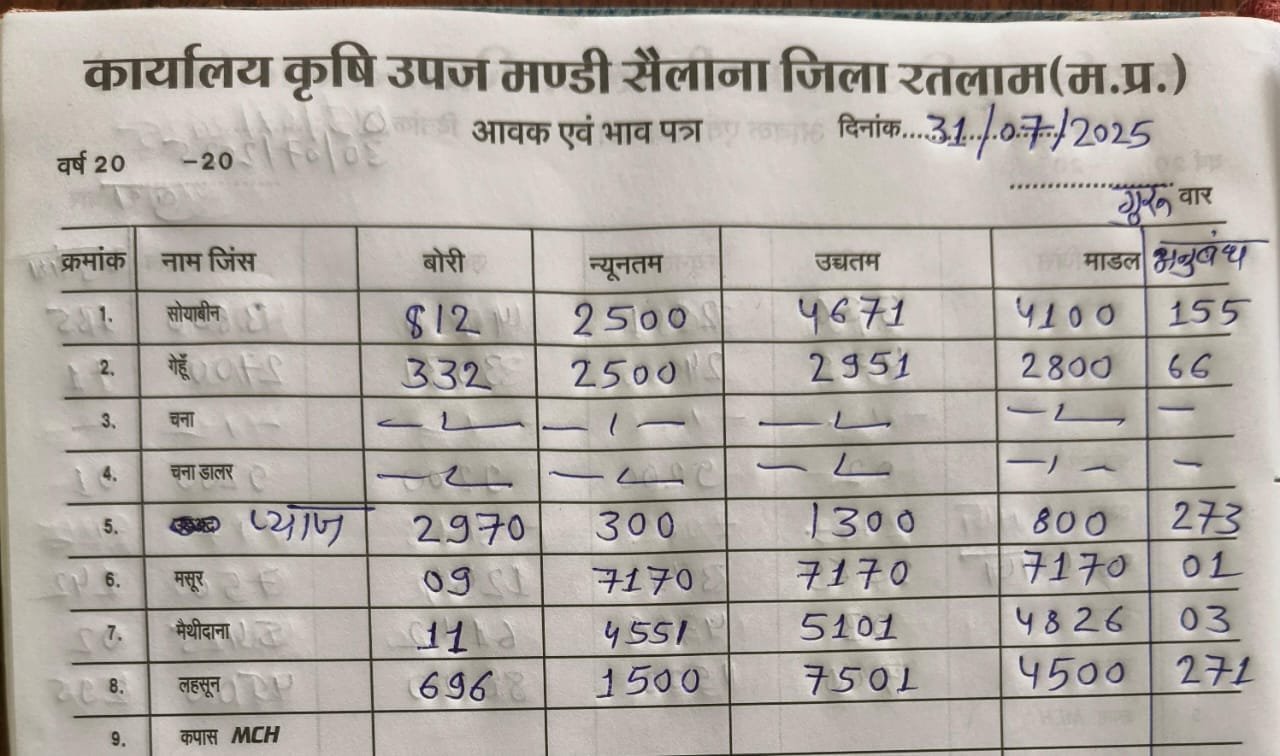 कार्यालय कृषि उपज मण्डी सैलाना जिला रतलाम(म.प्र.)
आवक एवं भाव पत्र दिनांक....31/07/2025
वर्ष 20 -20
गुरू वार
क्रमांक नाम जिंस बोरी न्यूनतम उच्चतम माडल अनुबंध
1. सोयाबीन 812 2500 4671 4100 155
2. गेहूँ 332 2500 2951 2800 66
3. चना — — — — —
4. चना डालर — — — — —
5. प्याज 2970 300 1300 800 273
6. मसूर 09 7170 7170 7170 01
7. मैथीदाना 11 4551 5101 4826 03
8. लहसून 696 1500 7501 4500 271
9. कपास MCH